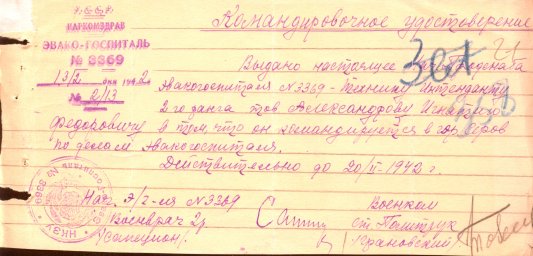 СССР
НАРКОМЗДРАВ
ЭВАКО-ГОСПИТАЛЬ
№ 3369
13/2 дня 1942
№ 2/13
Командировочное удостоверение
Выдано настоящее
Эвакогоспиталя №3369 - Технику Интенданту
2го ранга тов Александрову Игнатию
Федоровичу в том, что он командируется в гор. Киров
по делам Эвакогоспиталя.
Действительно до 20/II-1942 г.
Нач. Э/г-ля №3369
Военврач 2р.
Военком
ст. Политрук